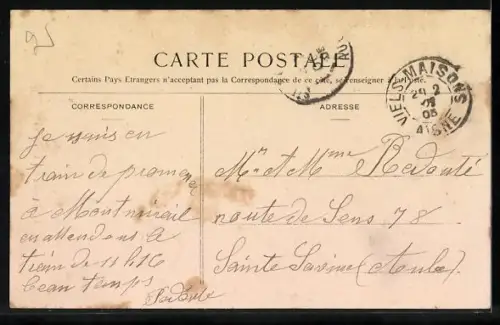 CARTE POSTALE
Certains Pays Etrangers n'acceptant pas la Correspondance de ce côté, se renseigner à la Poste.
CORRESPONDANCE
je suis en
train de promener
à Montmirail
en attendant le
train de 11h16
beau temps
ADRESSE
Mr et Mme Redouté
route de Sens 78
Sainte Savine (Aube)
VIELS-MAISONS
AISNE